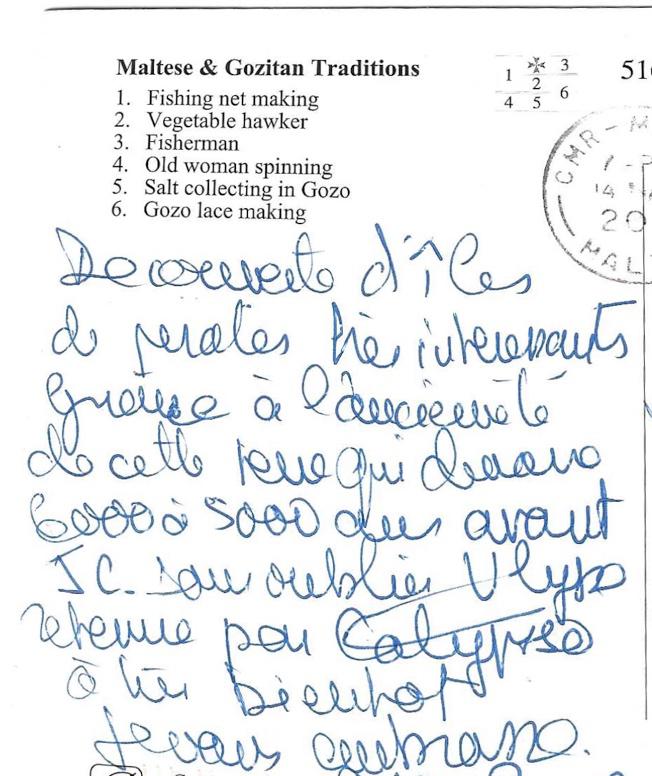 Maltese & Gozitan Traditions
1. Fishing net making
2. Vegetable hawker
3. Fisherman
4. Old woman spinning
5. Salt collecting in Gozo
6. Gozo lace making
1 3
2
4 5 6
51
CMR - M
14
20
MAL
Decouverte d'îles
de pirates très interessants
grace à l'ancienneté
de cette terre qui
6000 à 5000 ans avant
JC. sans oublier Ulysse
retenue par Calypso
à très bientot
Je vous embrasse.